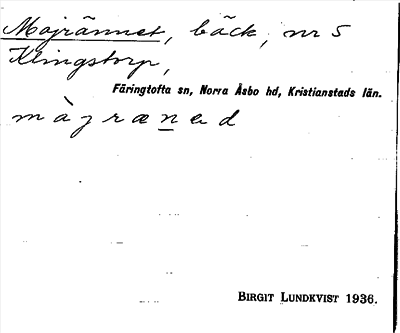 Majrännet, bäck, nr 5
Klingstorp,
Färingtofta sn, Norra Åsbo hd, Kristianstads län.
màjrænəd
BIRGIT LUNDKVIST 1936.